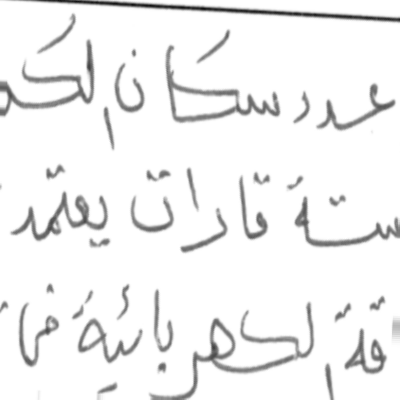 عدد سكان الكو
ستة قارات يعتمد
قة الكهربائية في